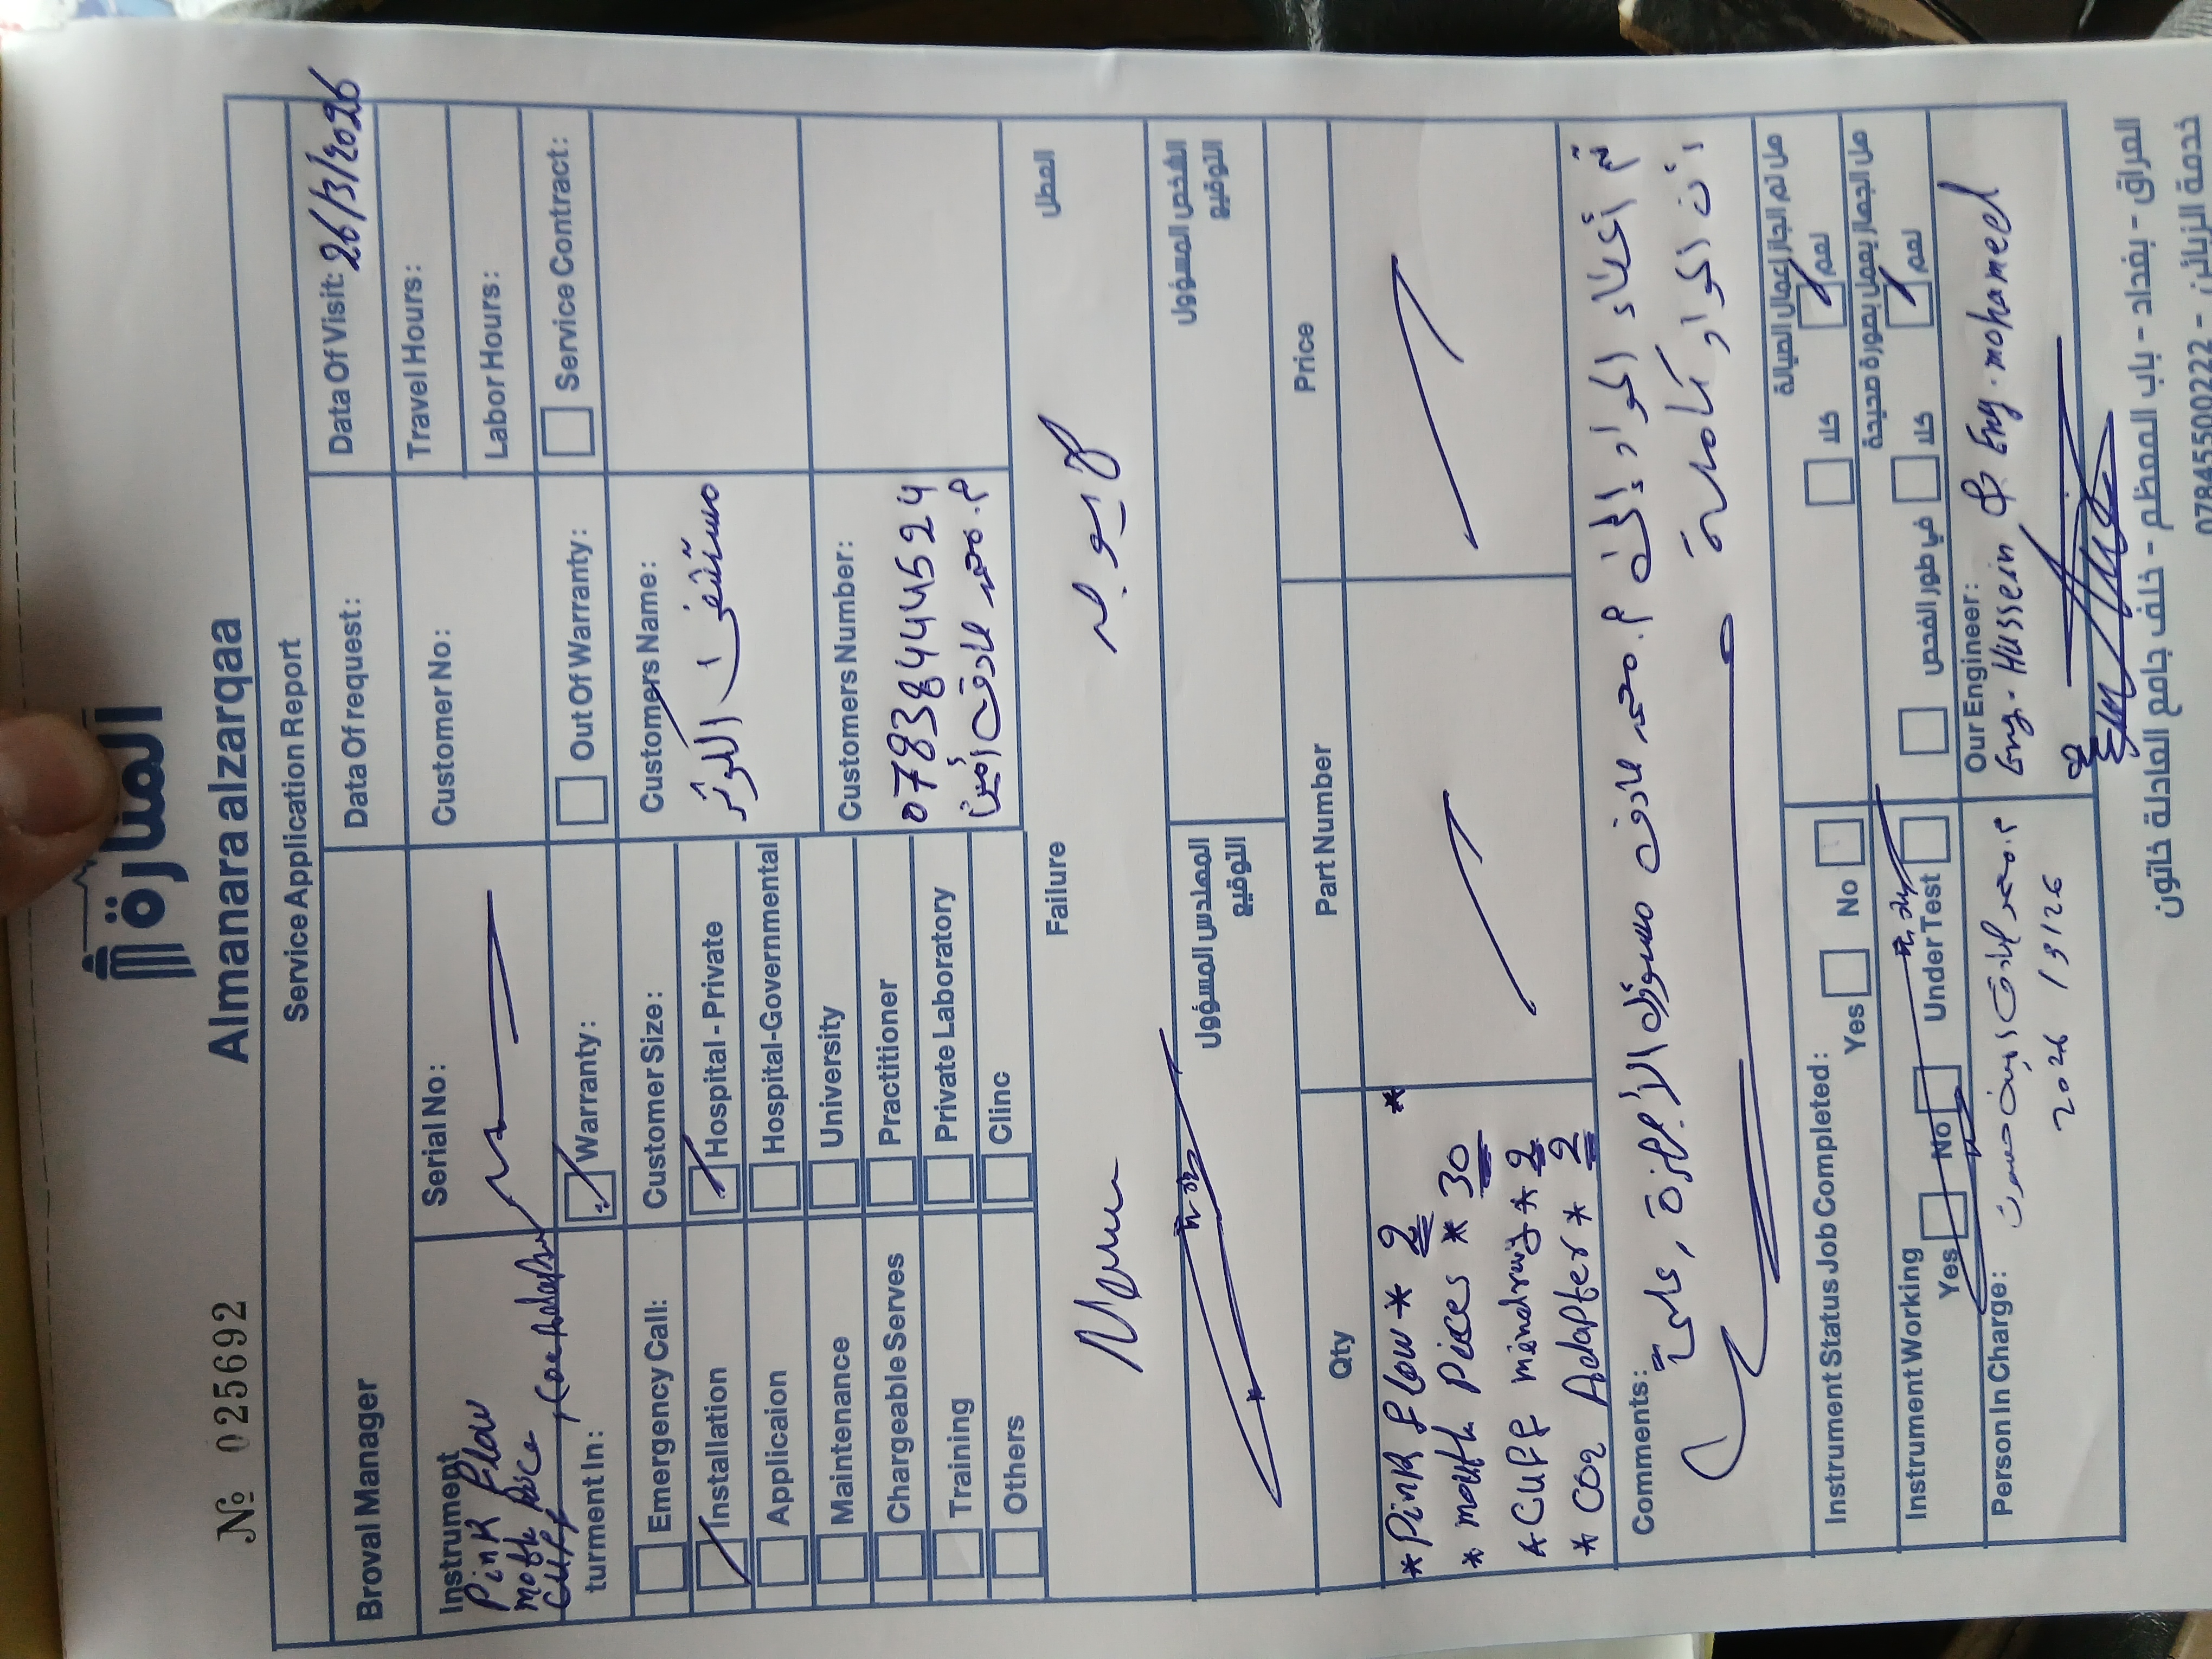 № 025692
المنارة
Almanara alzarqaa
Service Application Report
Broval Manager
Data Of request:
Data Of Visit: 26/3/2026
Travel Hours:
Labor Hours:
Instrument
Pink Flow
turment In:
Serial No:
Customer No:
Warranty:
Out Of Warranty:
Service Contract:
Emergency Call:
Installation
Applicaion
Maintenance
Chargeable Serves
Training
Others
Customer Size:
Hospital - Private
Hospital-Governmental
University
Practitioner
Private Laboratory
Clinc
Customers Name:
مستشفى الكوثر
Customers Number:
07838444524
م. محمد صادق أمين
Failure
العطل
None
لا يوجد
المهندس المسؤول
التوقيع
الشخص المسؤول
التوقيع
Qty
Part Number
Price
* Pink flow * 2
* mouth Pieces * 30
* Cuff mindray * 2
* CO2 Adapter * 2
Comments:
تم أعطاء المواد الى م. محمد صادق مسؤول الأجهزة, علماً
أن المواد كاملة
Instrument Status Job Completed:
Yes
No
هل تم انجاز اعمال الصيانة
كلا
نعم
Instrument Working
Yes
No
Under Test
هل الجهاز يعمل بصورة صحيحة
في طور الفحص
كلا
نعم
Person In Charge:
م. محمد صادق امين حسون
2026 / 3 / 26
Our Engineer:
Eng. Hussein & Eng. mohamed
العراق - بغداد - باب المعظم - خلف جامع العادلة خاتون
خدمة الزبائن - 07845500222